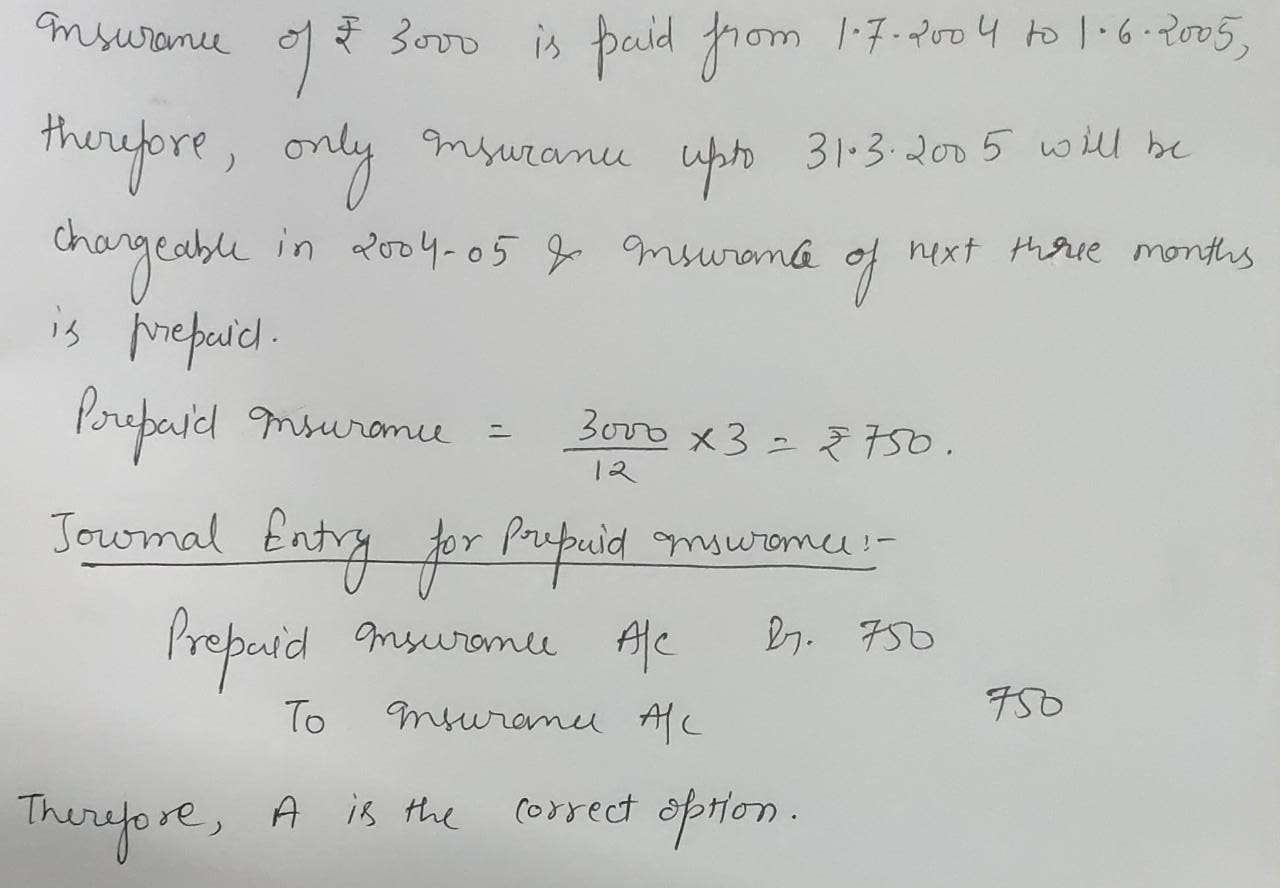 Insurance of ₹ 3000 is paid from 1.7.2004 to 1.6.2005,
therefore, only insurance upto 31.3.2005 will be
chargeable in 2004-05 & insurance of next three months
is prepaid.
Prepaid insurance = 3000/12 × 3 = ₹ 750.
Journal Entry for Prepaid insurance :-
Prepaid insurance A/c Dr. 750
To insurance A/c 750
Therefore, A is the correct option.